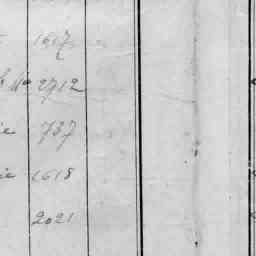 1617
No 2712
ie 737
ie 1618
2021